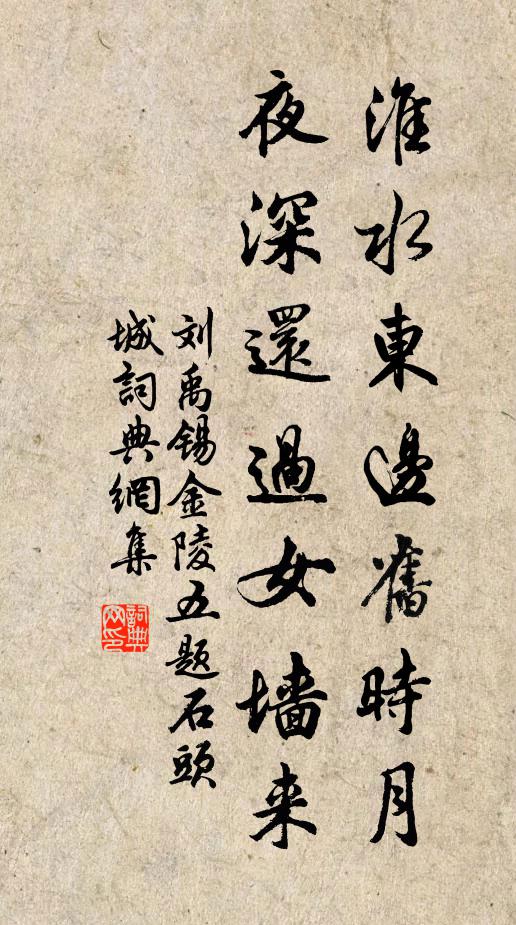 淮水東邊舊時月
夜深還過女墻来
刘禹锡金陵五题石頭
城詞典網集
詞典
网印